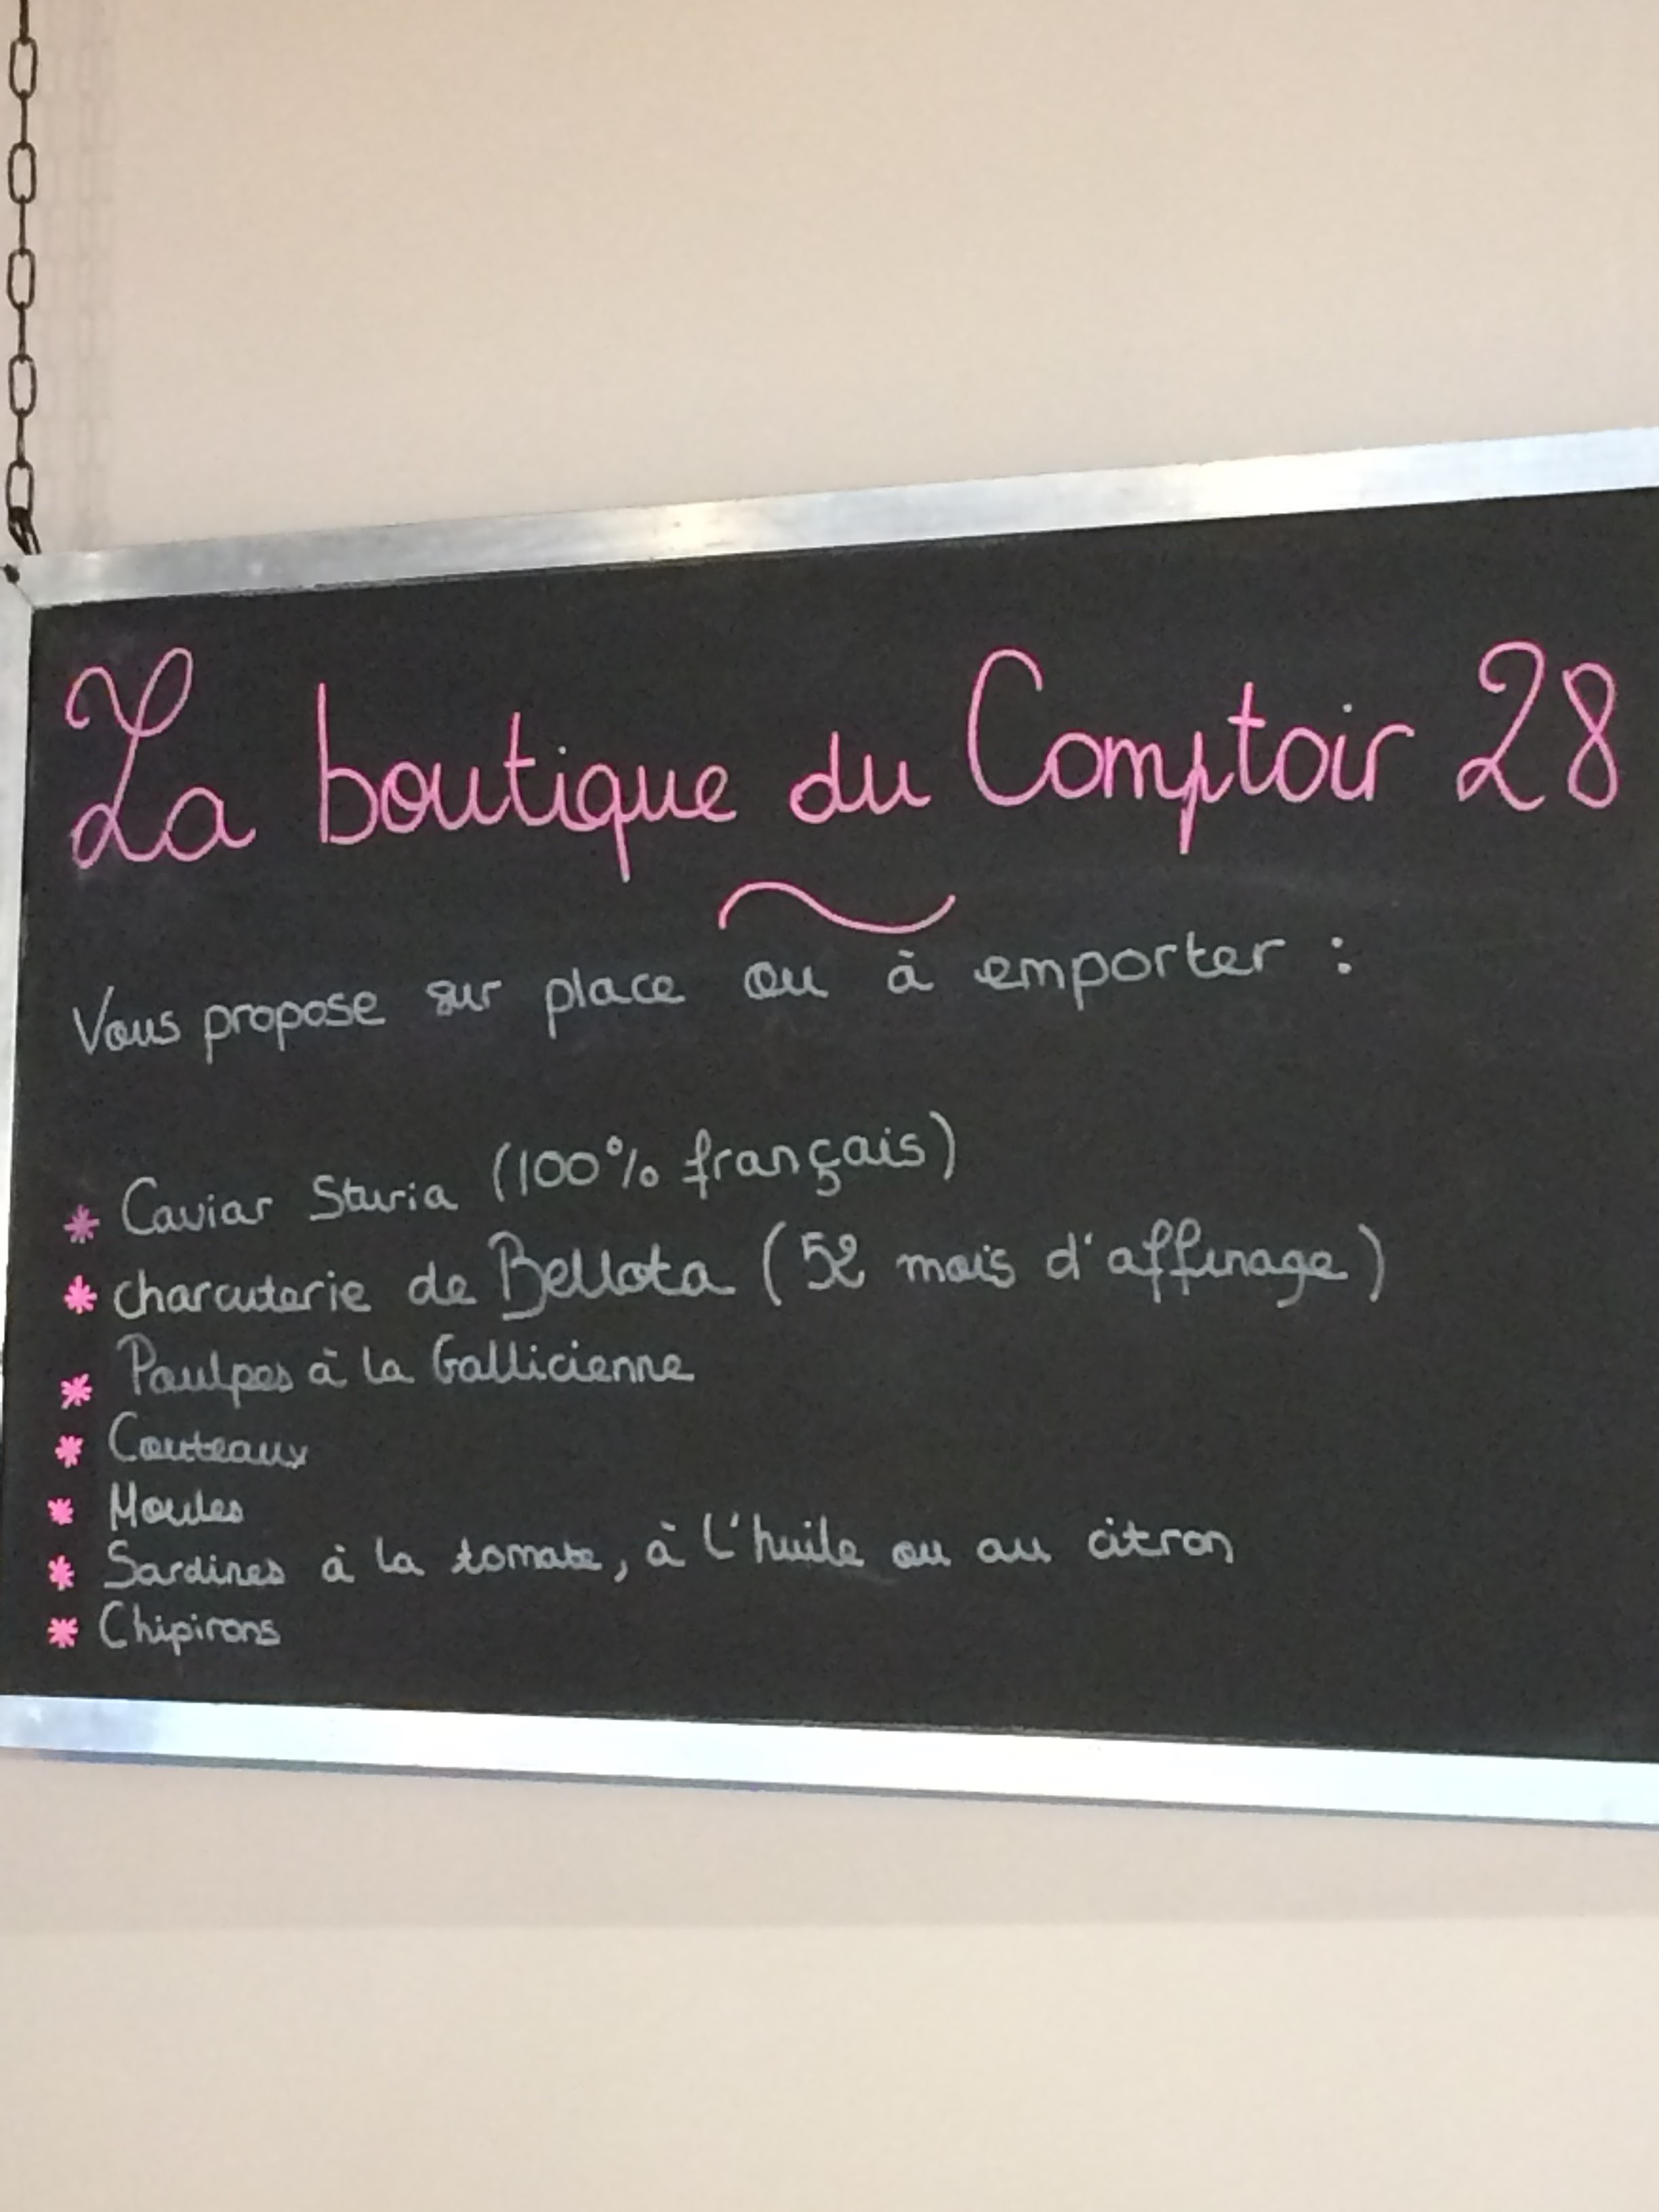 La boutique du Comptoir 28
Vous propose sur place ou à emporter :
* Caviar Sturia (100% français)
* charcuterie de Bellota (52 mois d'affinage)
* Poulpes à la Gallicienne
* Couteaux
* Moules
* Sardines à la tomate, à l'huile ou au citron
* Chipirons